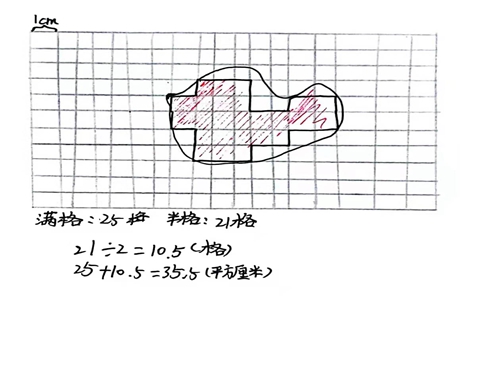 1cm
满格：25格 半格：21格
21÷2=10.5（格）
25+10.5=35.5（平方厘米）